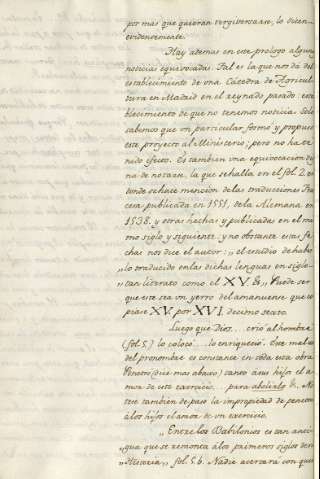 por mas que quieran tergiversarse, lo dicen
evidentemente.
Hay ademas en este prologo algunas
noticias equivocadas. Tal es la que nos da del
establecimiento de una Cátedra de Agricul
tura en Madrid en el reynado pasado: esta
blecimiento de que no tenemos noticia. Solo
sabemos que un particular formó y propuso
este proyecto al Ministerio; pero no ha te
nido efecto. Es tambien una equivocacion dig
na de notarse, la que se halla en el fol. 2. en
donde se hace mencion de las traducciones Fran
cesa publicada en 1551, de la Alemana en
1538. y otras hechas y publicadas en el mis
mo siglo y siguiente. y no obstante estas fe
chas nos dice el autor: „ el estudio de haber
„ lo traducido en las dichas lenguas en siglo
„ tan literato como el XV. &. „ Puede ser
que este sea un yerro del amanuense, que co
piase XV. por XVI. decimo sexto.
Luego que Dios .. crió al hombre
(fol. 5.) lo colocó .... lo enriqueció. Este mal uso
del pronombre es constante en toda esta obra
(mas abaxo) tanto á sus hijos el a
mor de este exercicio. .. para abolirlo &. No
tese tambien de paso la impropiedad de
á los hijos el amor de un exercicio.
„ Entre los Babilonios es tan anti
gua que se remonta á los primeros siglos de su
„ Historia „ fol. 5. b. Nadie acertará con que